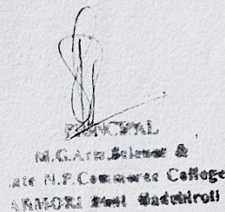 PRINCIPAL
M.G.Arts,Science &
Late N.P.Commerce College
ARMORI Dist Gadchiroli